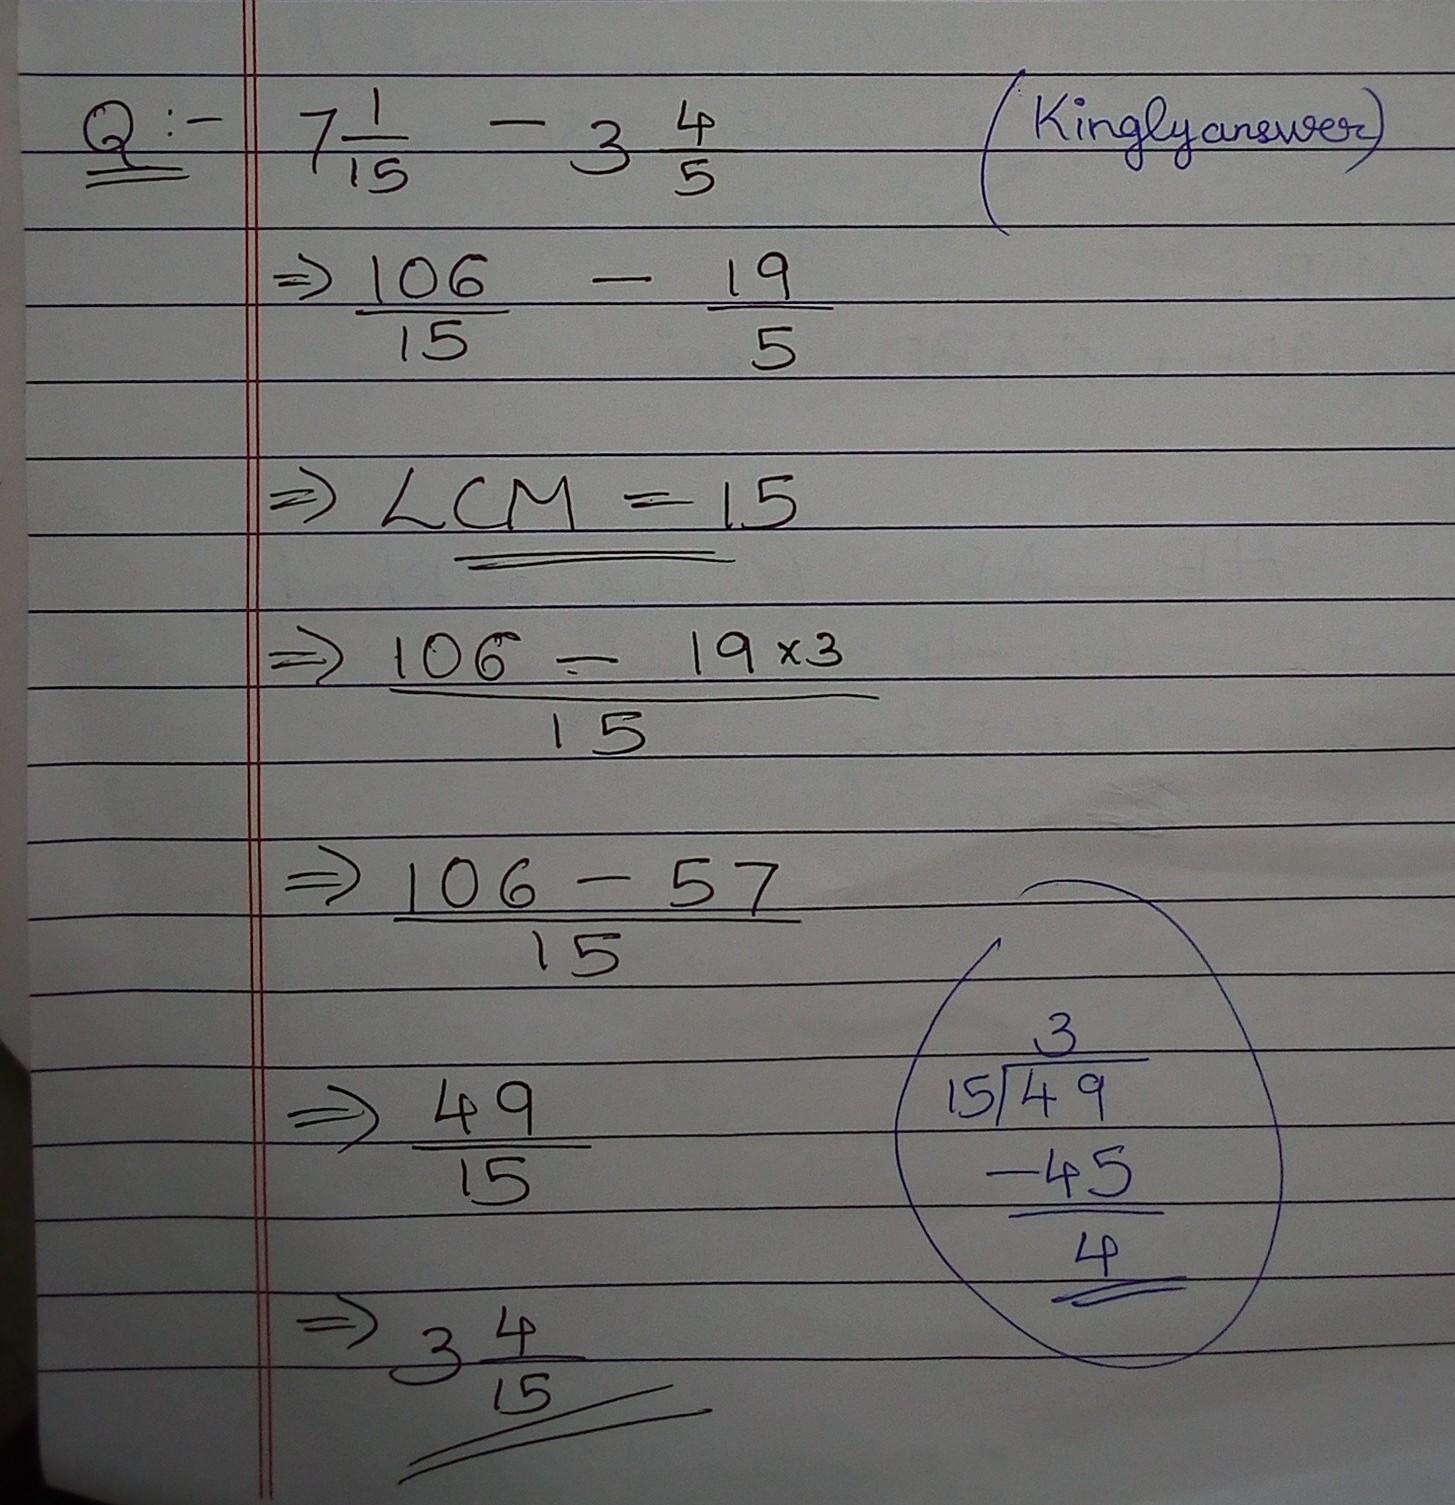 Q :- 7 1/15 - 3 4/5 (Kinglyanswer)
⇒ 106/15 - 19/5
⇒ LCM = 15
⇒ 106 - 19 x 3 / 15
⇒ 106 - 57 / 15
⇒ 49/15
3
15 49
-45
4
⇒ 3 4/15